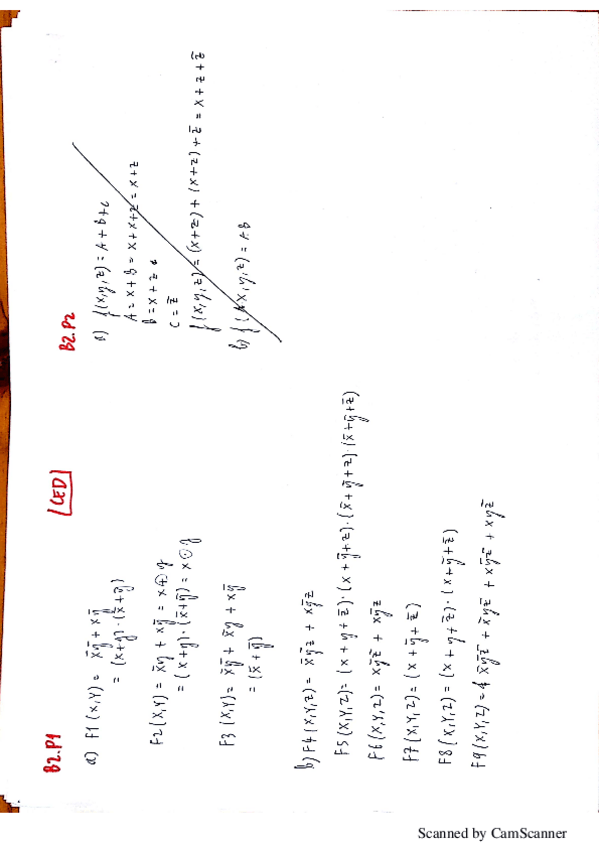 B2.P1
[CED]
B2.P2
a) F1(X,Y) = x̄ȳ + xȳ
= (x+ȳ)·(x̄+ȳ)
F2(X,Y) = x̄y + xȳ = x⊕y
= (x+y)·(x̄+ȳ) = x⊙y
F3(X,Y) = x̄ȳ + x̄y + xȳ
= (x̄+ȳ)
b) F4(X,Y,Z) = x̄ȳz + xȳz
F5(X,Y,Z) = (x+y+z̄)·(x+ȳ+z)·(x̄+ȳ+z)·(x̄+ȳ+z̄)
F6(X,Y,Z) = xȳz̄ + xyz
F7(X,Y,Z) = (x+ȳ+z̄)
F8(X,Y,Z) = (x+y+z̄)·(x+ȳ+z̄)
F9(X,Y,Z) = x̄ȳz̄ + x̄yz̄ + xȳz̄ + xyz̄
a) f(x,y,z) = A+B+C
A = x+B = x+x+z = x+z
B = x+z
C = z̄
f(x,y,z) = (x+z) + (x+z) + z̄ = x+z+z̄
b) f(x,y,z) = AB
Scanned by CamScanner